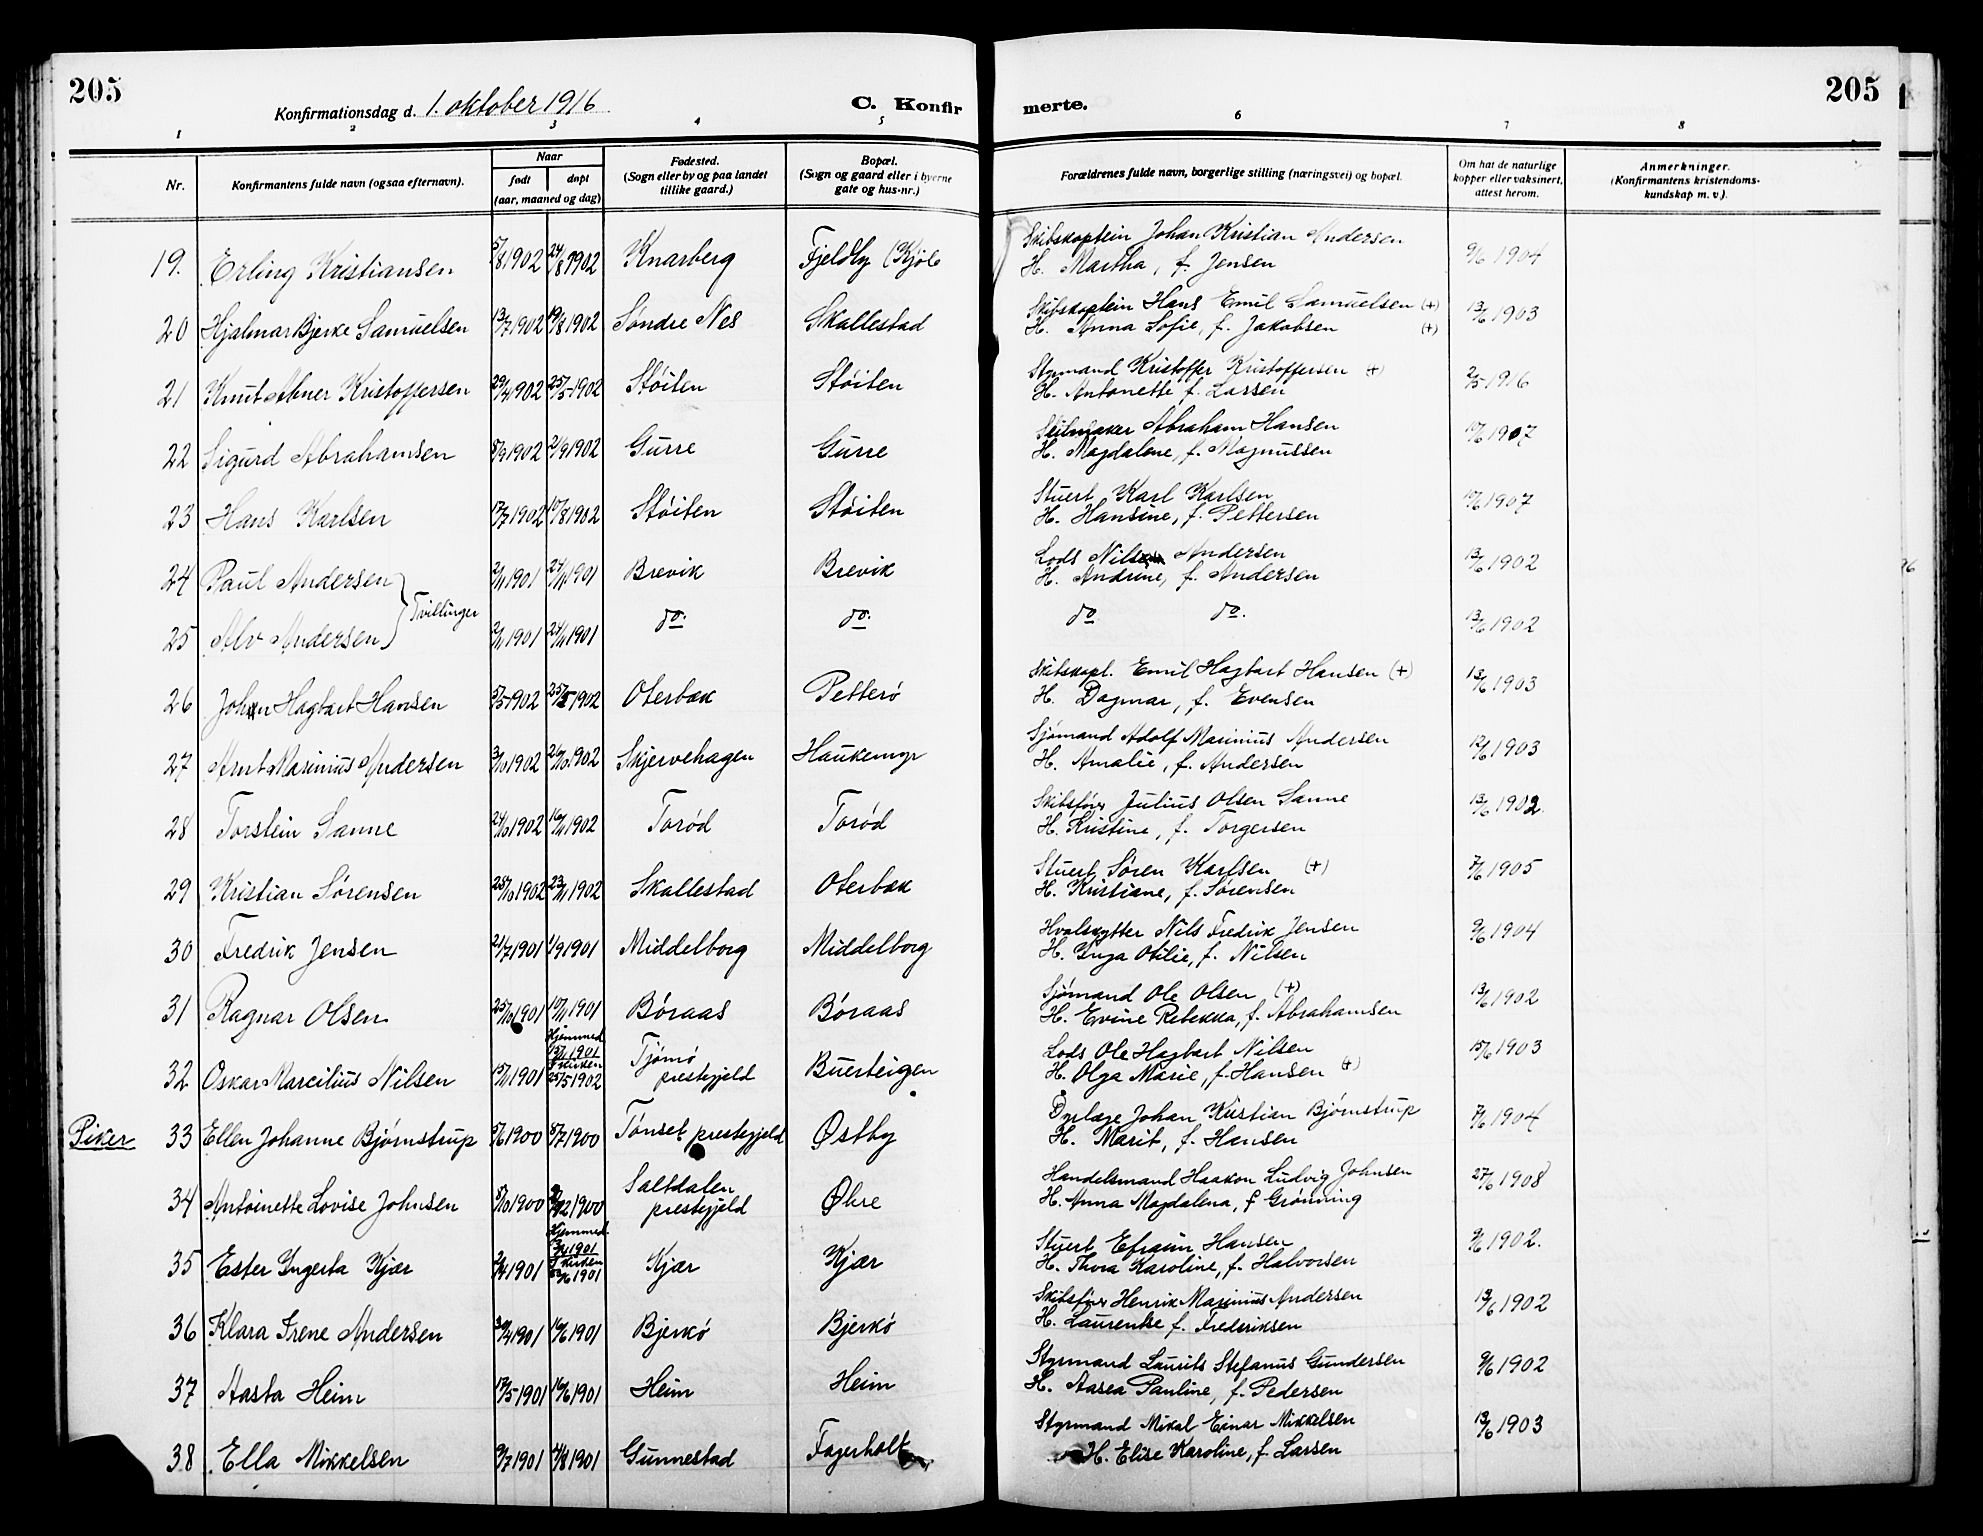 205
Konfirmationsdag d. 1. oktober 1916
C. Konfir merte.
205
1 2 3 4 5 6 7 8
Nr.
Konfirmantens fulde navn (ogsaa efternavn).
Naar
født
døpt
(aar, maaned og dag)
Fødested.
(Sogn eller by og paa landet
tillike gaard.)
Bopæl.
(Sogn og gaard eller i byerne
gate og hus-nr.)
Forældrenes fulde navn, borgerlige stilling (næringsvei) og bopæl.
Om hat de naturlige
kopper eller vaksinert,
attest herom.
Anmerkninger.
(Konfirmantens kristendoms-
kundskap m. v.)
19. Erling Kristiansen 5/8 1902 24/8 1902 Knarberg Fjeldby (Kjøle Skibskaptein Johan Kristian Andersen 9/6 1904
H. Martha, f. Jensen
20 Hjalmar Bjerke Samuelsen 13/7 1902 19/8 1902 Søndre Nes Skallestad Skibskaptein Hans Emil Samuelsen (+) 13/6 1903
H. Anna Sofie, f. Jakobsen (+)
21 Knut Abner Kristoffersen 29/4 1902 25/5 1902 Støiten Støiten Styrmand Kristoffer Kristoffersen (+) 2/5 1916
H. Antonette f. Larsen
22 Sigurd Abrahamsen 8/9 1902 21/9 1902 Gurre Gurre Seilmaker Abraham Hansen 17/6 1907
H. Magdalene, f. Magnussen
23 Hans Karlsen 17/7 1902 17/8 1902 Støiten Støiten Stuert Karl Karlsen 17/6 1907
H. Hansine, f. Pettersen
24 Paul Andersen 2/11 1901 24/11 1901 Brevik Brevik Lods Nils Andersen 13/6 1902
H. Andrine, f. Andersen
Tvillinger
25 Alv Andersen 2/11 1901 24/11 1901 do. do. do do. 13/6 1902
26 John Hagbart Hansen 5/5 1902 25/5 1902 Oterbæk Petterø Skibskapt. Emil Hagbart Hansen (+) 13/6 1903
H. Dagmar, f. Evensen
27 Arnt Marinius Andersen 3/10 1902 26/10 1902 Skjervehagen Haukemyr Sjømand Adolf Marinius Andersen 12/6 1903
H. Amalie, f. Andersen
28 Torstein Sanne 24/10 1902 16/11 1902 Torød Torød Skibsfører Julius Olsen Sanne 13/6 1902.
H. Kristine, f. Torgersen
29 Kristian Sørensen 25/10 1902 23/11 1902 Skallestad Oterbæk Stuert Søren Karlsen (+) 7/6 1905
H. Kristiane, f. Sørensen
30 Fredrik Jensen 21/7 1901 1/9 1901 Middelborg Middelborg Hvalskytter Nils Fredrik Jensen 9/6 1904
H. Inga Otilie, f. Nilsen
31 Ragnar Olsen 25/10 1901 17/11 1901 Børaas Børaas Sjømand Ole Olsen (+) 13/6 1902
H. Evine Rebekka, f. Abrahamsen
32 Oskar Marcilius Nilsen 15/11 1901 Hjemmed. 15/11 1901 I kirken 25/5 1902 Tjømø Buerteigen Lods Ole Hagbart Nilsen 15/6 1903
prestegjeld H. Olga Marie, f. Hansen (+)
Piker 33 Ellen Johanne Bjørnstrup 5/6 1900 8/7 1900 Tønset prestegjeld Østby Dyrlæge Johan Kristian Bjørnstrup 7/6 1904
H. Marit, f. Hansen
34 Antoinette Lovise Johnsen 5/10 1900 /12 1900 Saltdalen Øhre Handelsmand Haakon Ludvig Johnsen 27/6 1908
prestegjeld H. Anna Magdalena, f Grønning
35 Ester Ingerta Kjær 2/4 1901 Hjemmed. 1901 I kirken /6 1901 Kjær Kjær Stuert Efraim Hansen 9/6 1902.
H. Thora Karoline, f. Halvorsen
36 Klara Irene Andersen 30/4 1901 16/6 1901 Bjerkø Bjerkø Skibsfører Henrik Marinius Andersen 13/6 1902
H. Laurentse f. Frederiksen
37 Aasta Heim 17/5 1901 16/6 1901 Heim Heim Styrmand Laurits Stefanus Gundersen 9/6 1902
H. Aasea Pauline, f. Pedersen
38 Ella Mikkelsen 9/7 1901 4/8 1901 Gunnestad Fagerholt Styrmand Mikal Einar Mikkelsen 13/6 1903
H. Elise Karoline, f. Larsen